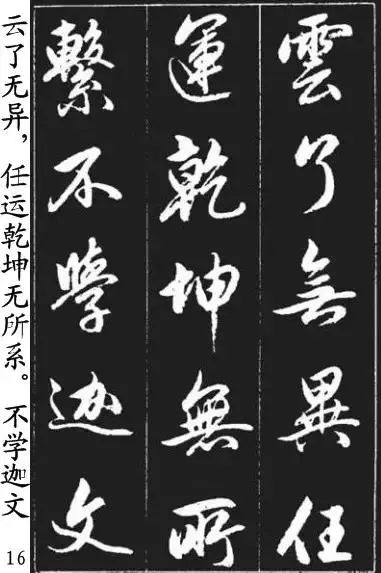 雲了無異任
運乾坤無所
繫不學迦文
云了无异，任运乾坤无所系。不学迦文
16